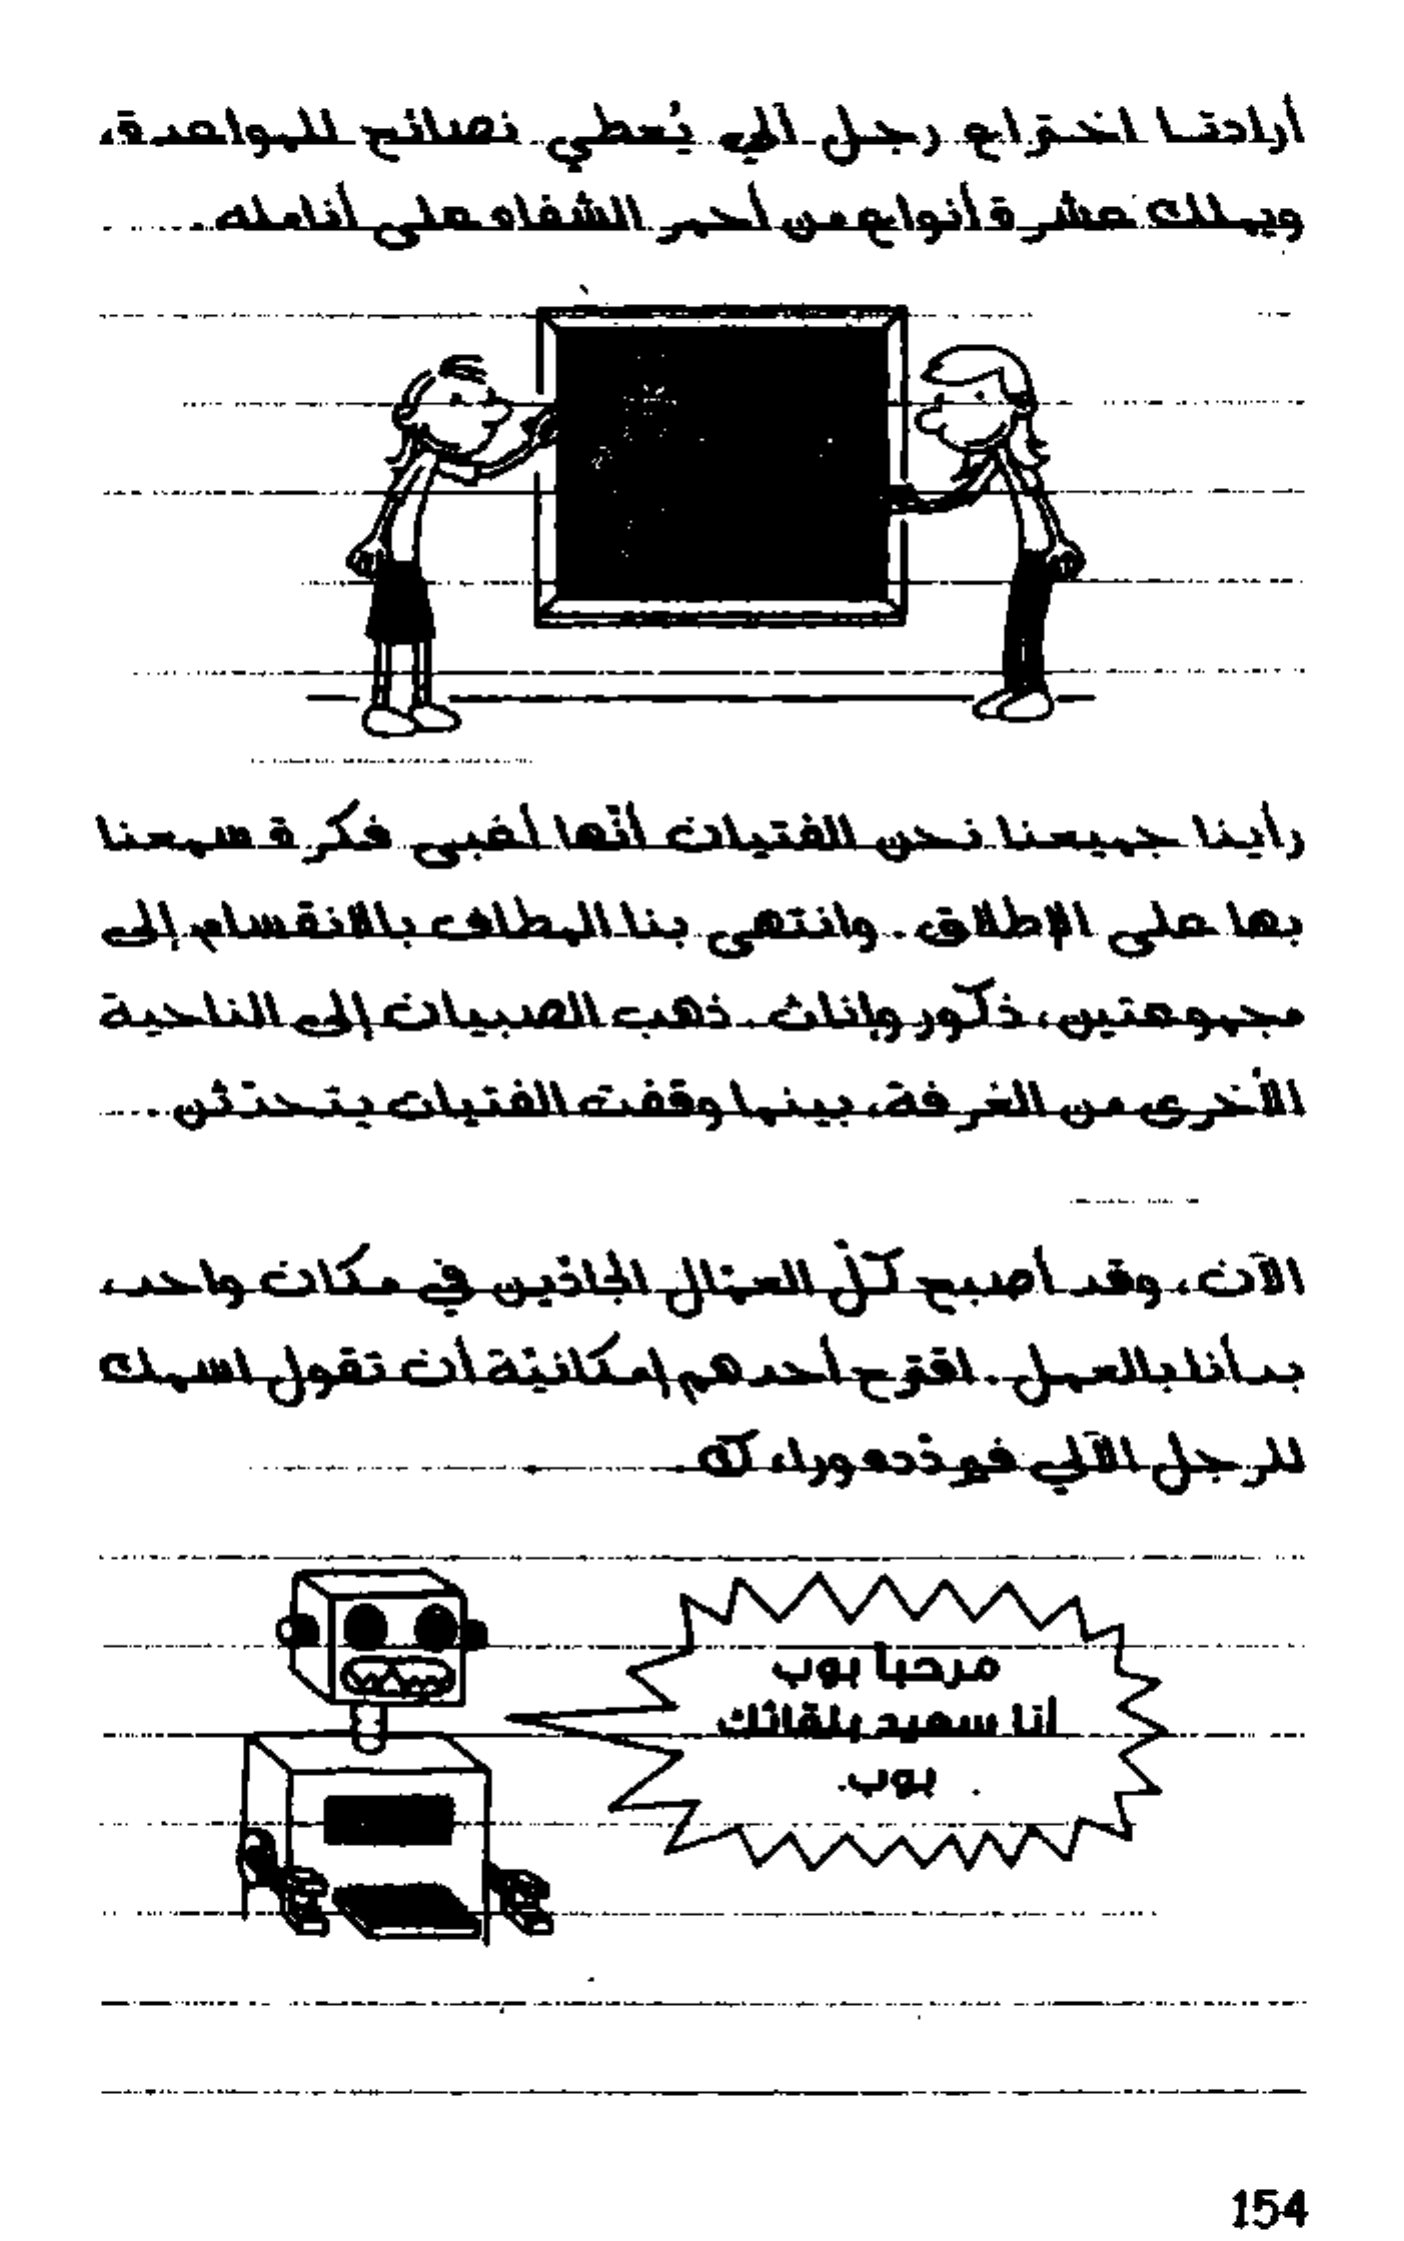 أرادتا اختراع رجل آلي يُعطي نصائح للمواعدة،
ويملك عشرة أنواع من أحمر الشفاه على أنامله.
رأينا جميعنا نحن الفتيان أنّها أغبى فكرة سمعنا
بها على الإطلاق. وانتهى بنا المطاف بالانقسام إلى
مجموعتين، ذكور وإناث. ذهب الصبيان إلى الناحية
الأخرى من الغرفة، بينما وقفت الفتيات يتحدّثن.
الآن، وقد أصبح كلّ العمّال الجادّين في مكان واحد،
بدأنا بالعمل. اقترح أحدهم إمكانيّة أن تقول اسمك
للرجل الآلي فيردّده وراءك.
مرحباً بوب
أنا سعيد بلقائك
بوب.
154